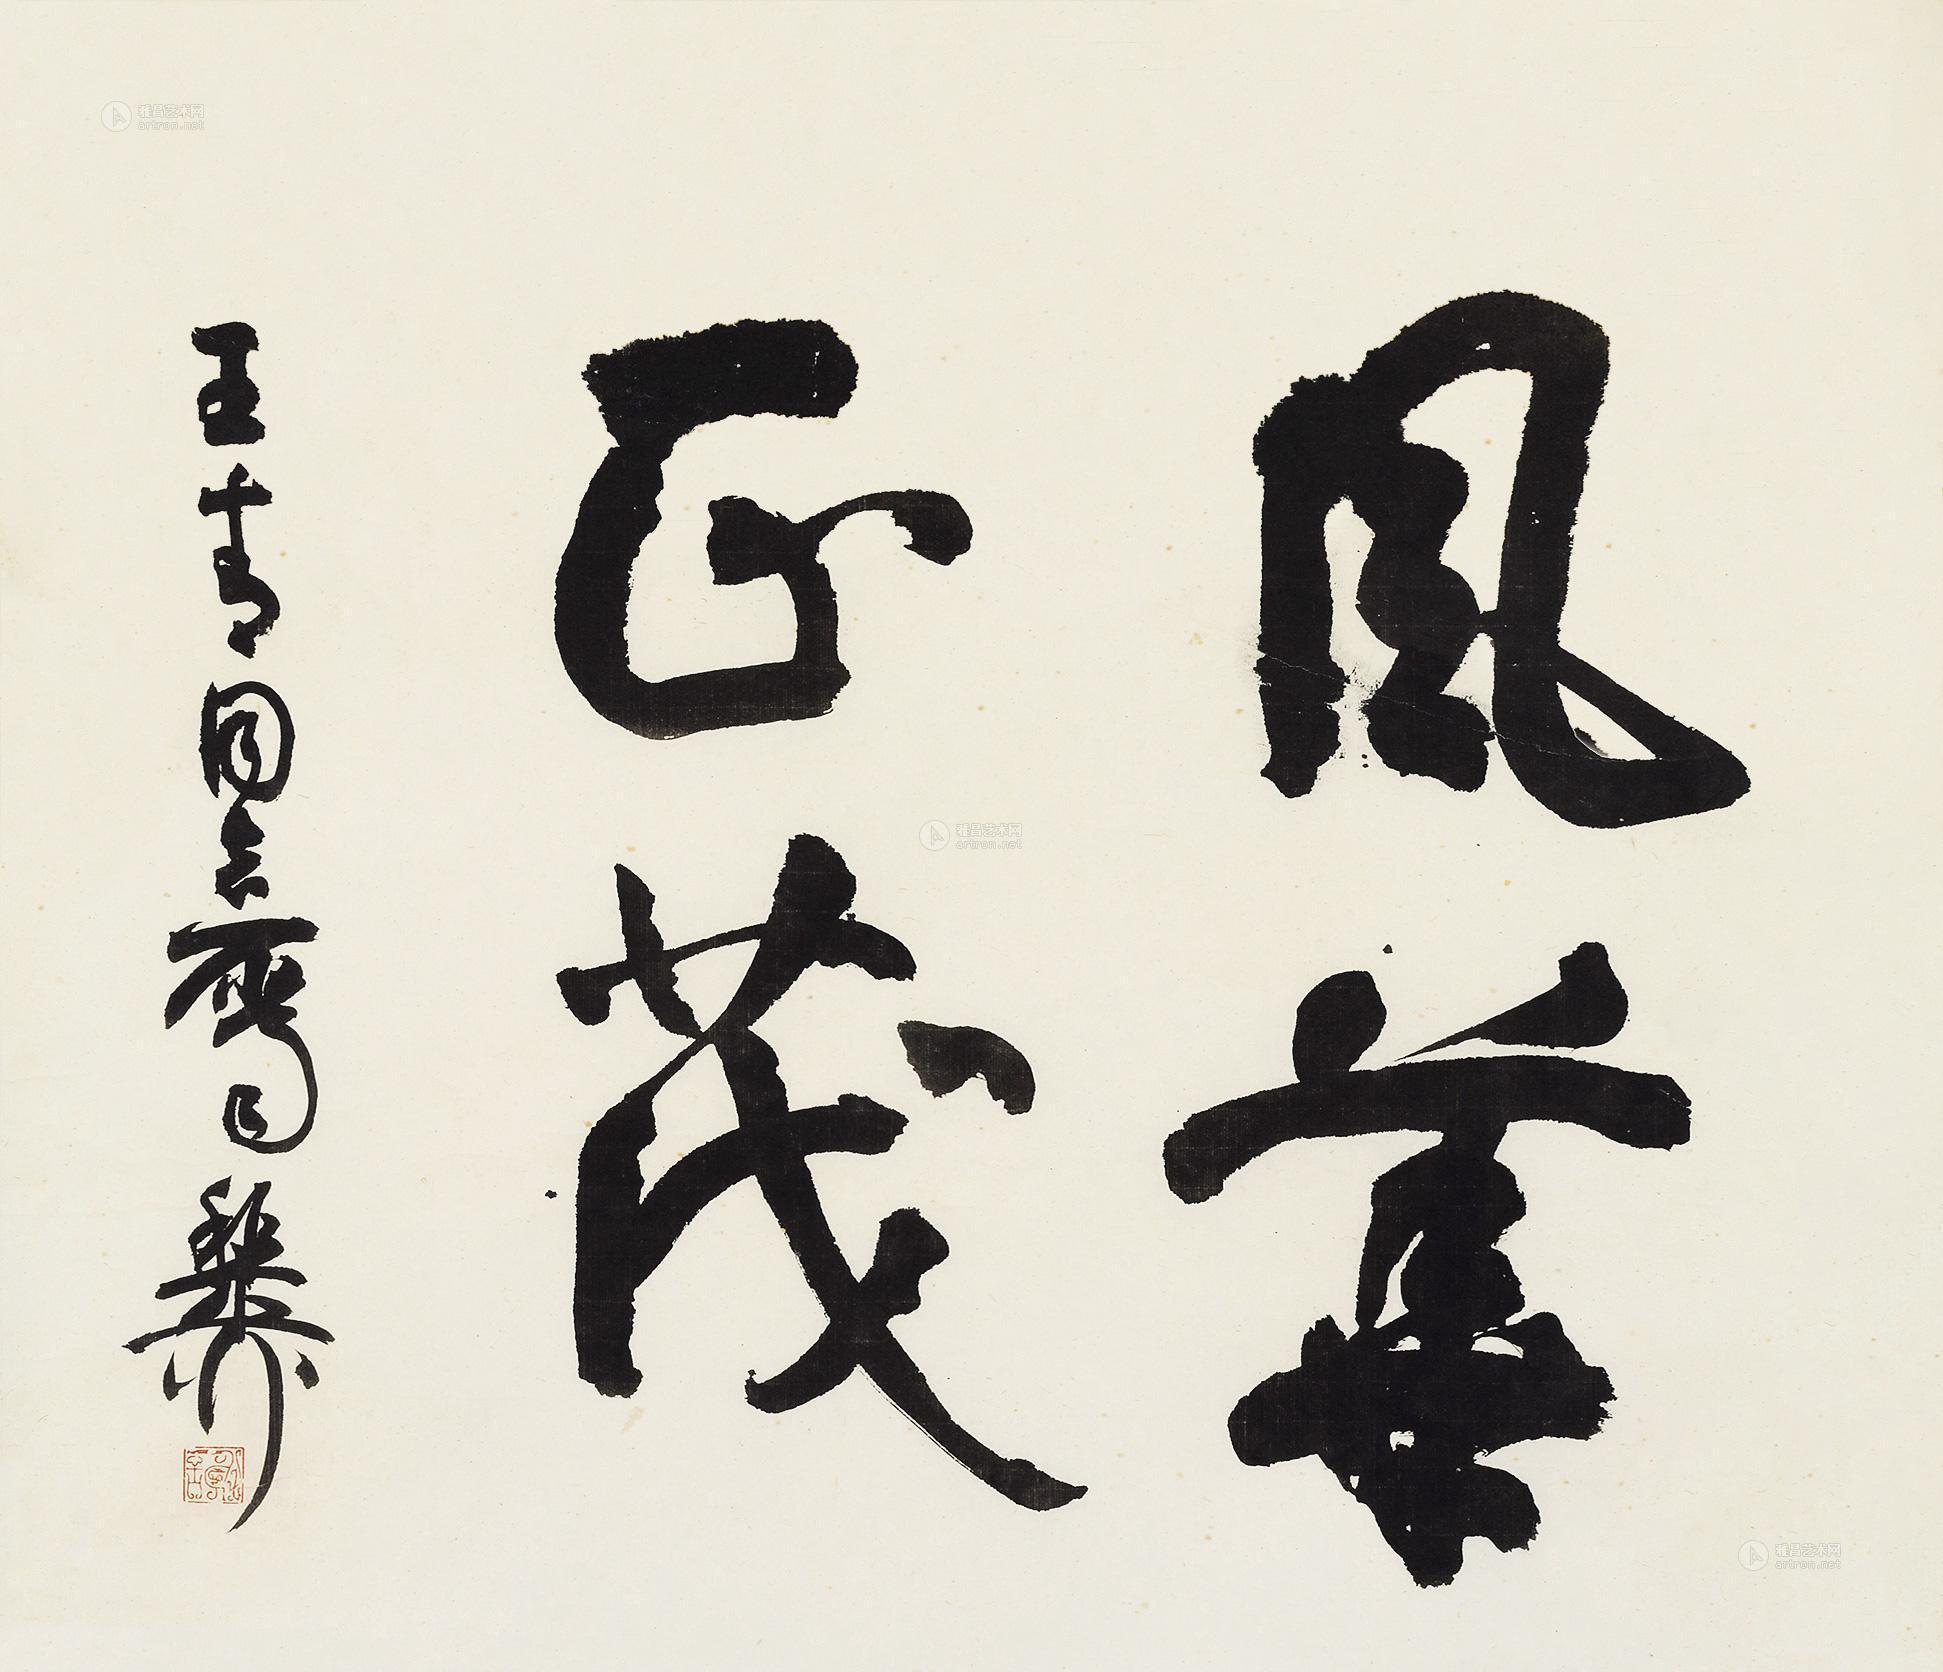 風華
正茂
王青同志
雅昌艺术网
artron.net
雅昌艺术网
artron.net
雅昌艺术网
artron.net